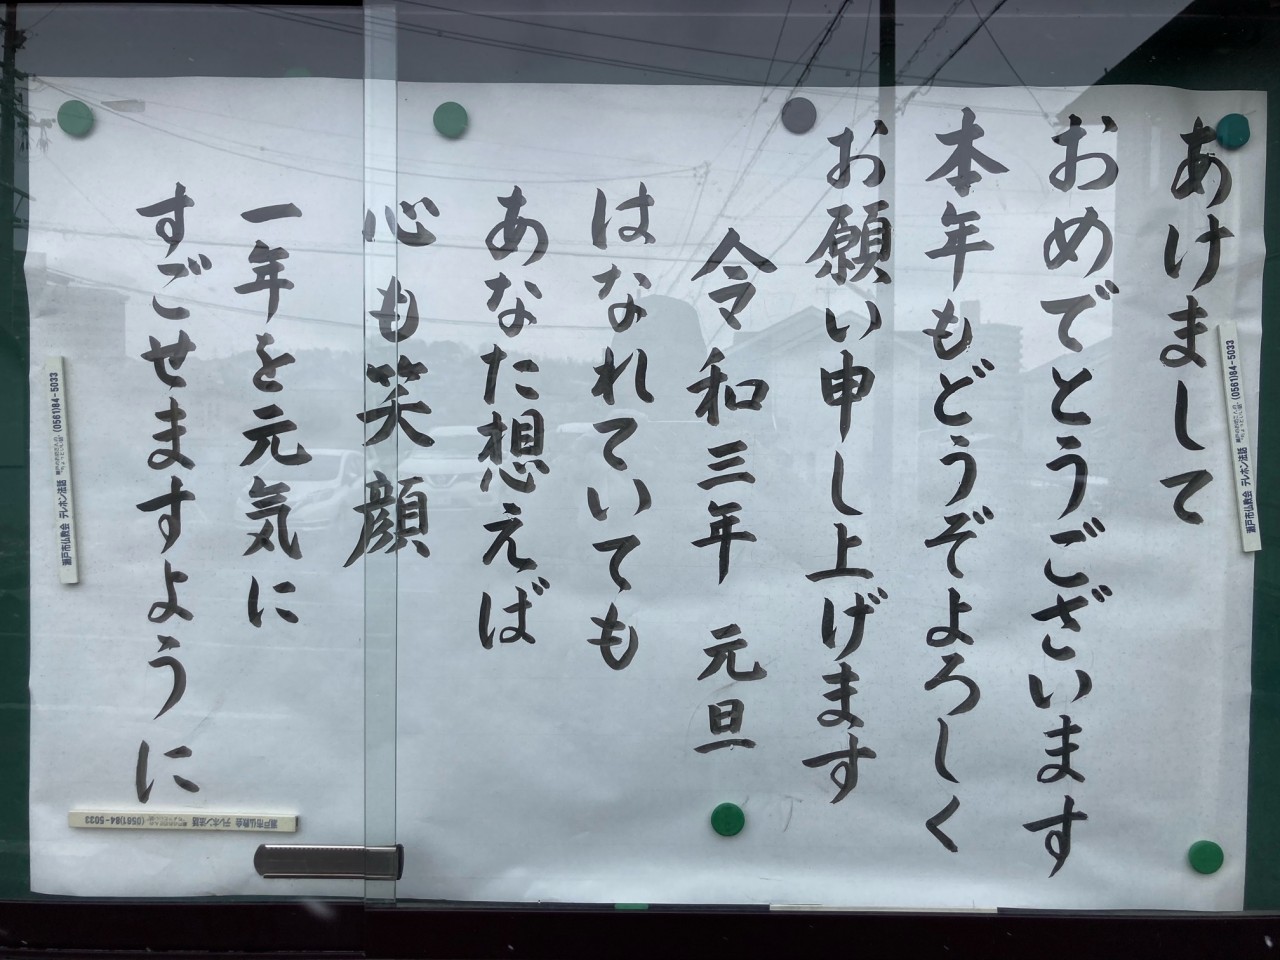 あけまして
おめでとうございます
本年もどうぞよろしく
お願い申し上げます
令和三年 元旦
はなれていても
あなた想えば
心も笑顔
一年を元気に
すごせますように
瀬戸市仏教会 テレホン法話 (0561)84-5033
瀬戸市仏教会 テレホン法話 (0561)84-5033
瀬戸市仏教会 テレホン法話 (0561)84-5033